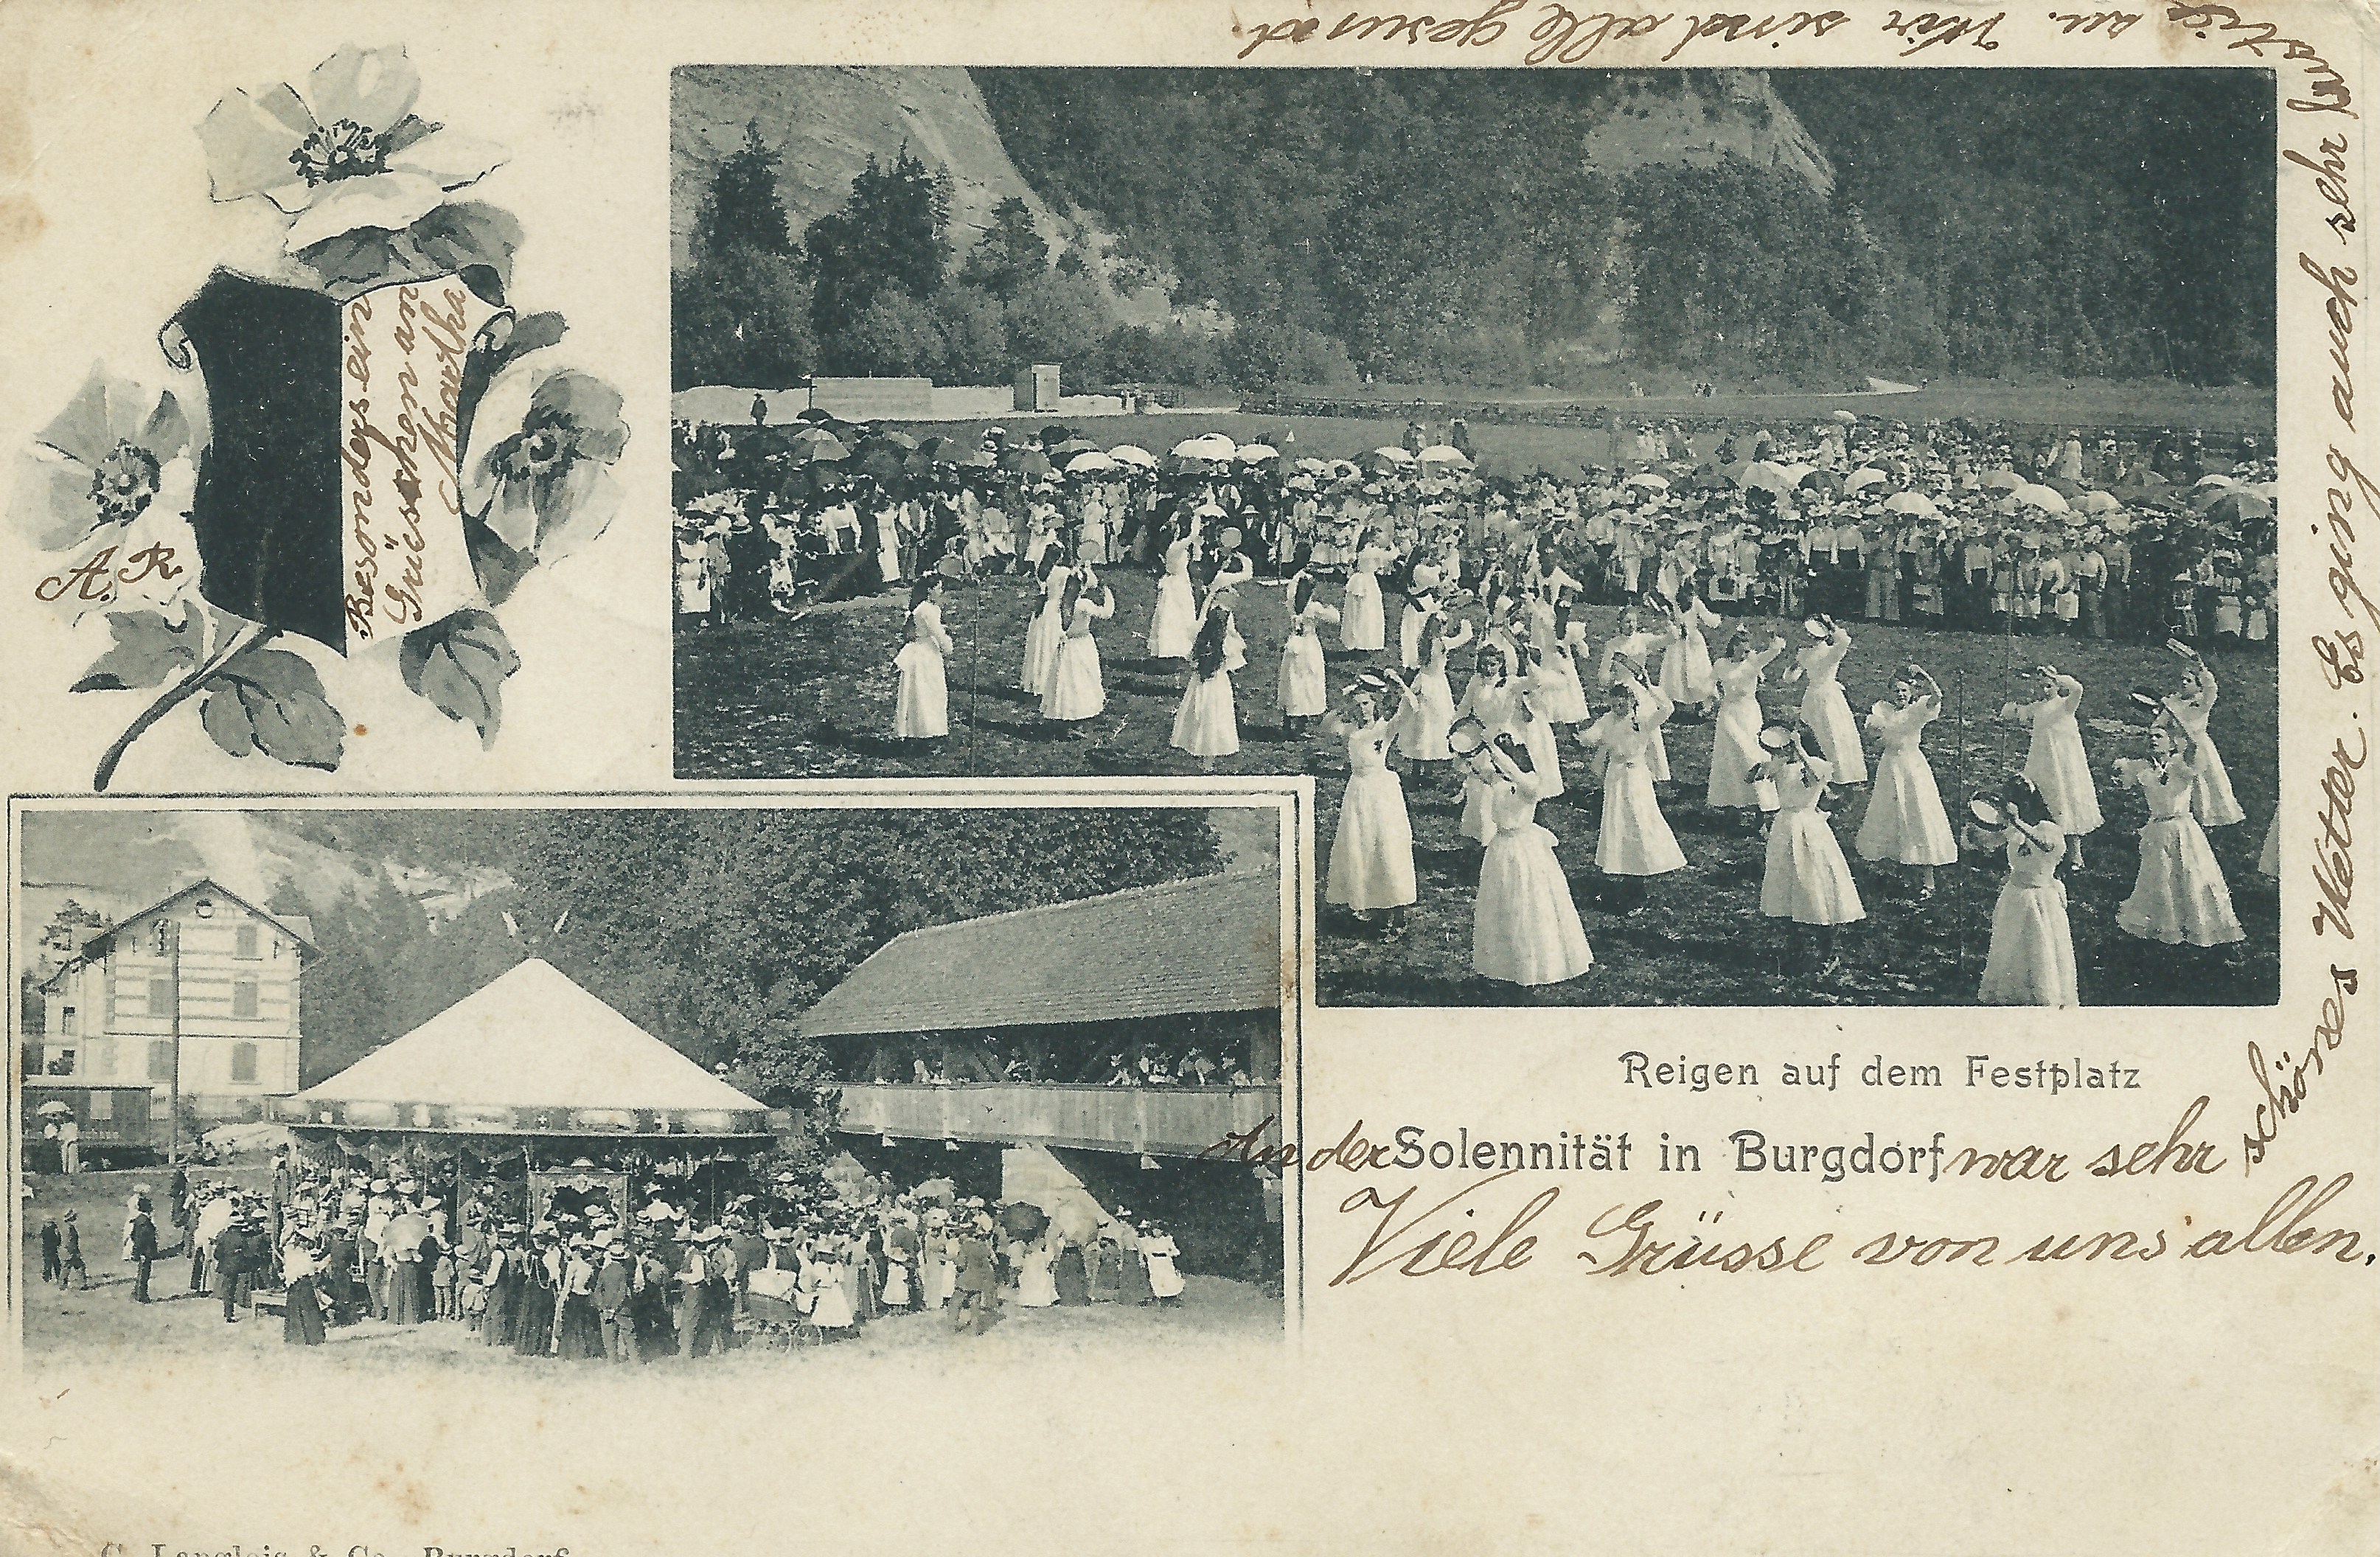 Besonders ein
Grüsschen an
Martha
A. R.
Reigen auf dem Festplatz
An der Solennität in Burgdorf war sehr
schönes Wetter. Es ging auch sehr lustig zu. Wir sind alle gesund.
Viele Grüsse von uns allen.
C. Langlois & Co. Burgdorf